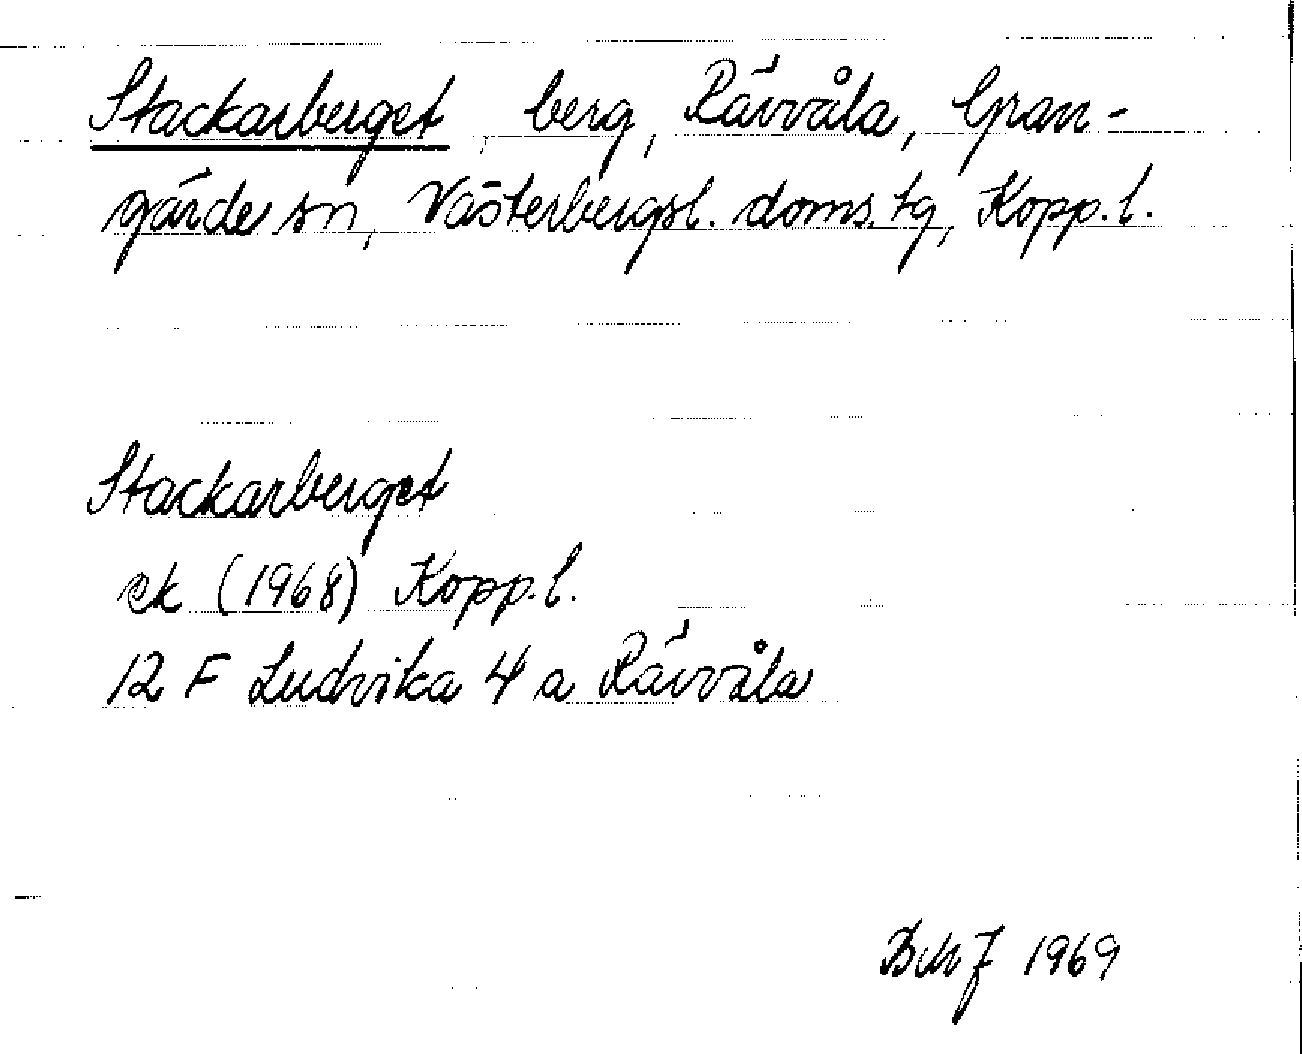 Stackarberget, berg, Rävvåla, Gran-
gärde sn, Västerbergsl. doms.tg, Kopp.l.
Stackarberget
ek (1968) Kopp.l.
12 F Ludvika 4 a Rävvåla
1969